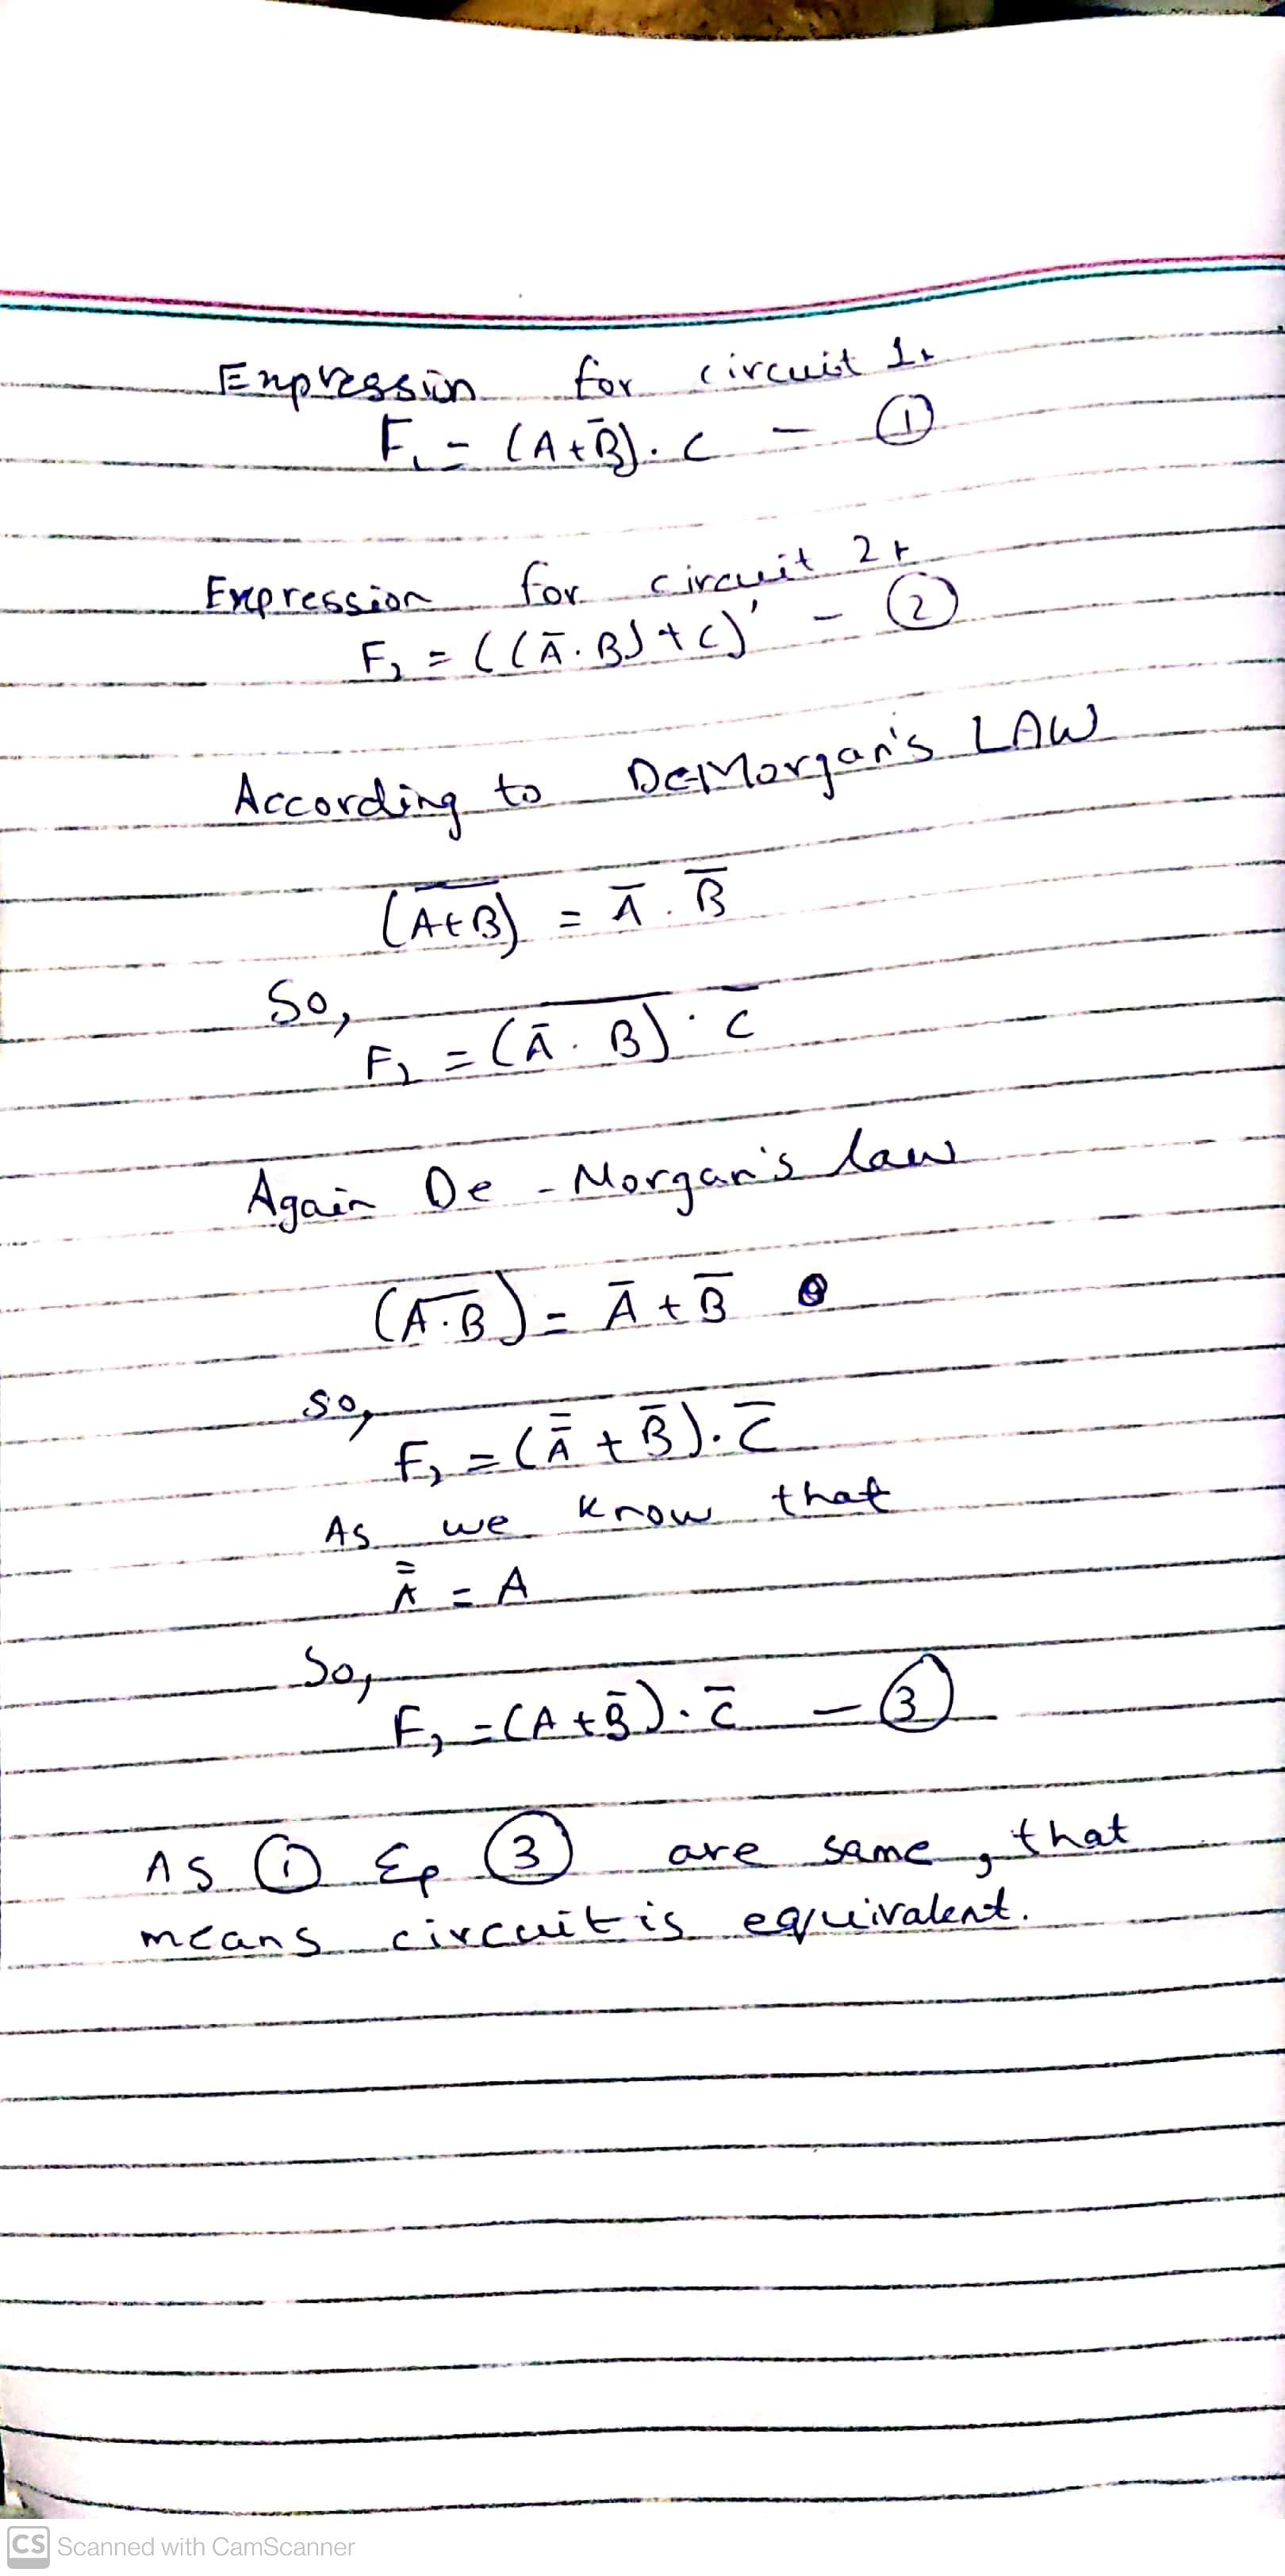 Expression for circuit 1:
F₁ = (A+B̅).C - ①
Expression for circuit 2:
F₂ = ((A̅.B)+C)' - ②
According to DeMorgan's LAW
(A̅+̅B̅) = A̅.B̅
So,
F₂ = (A̅.B)̅.C̅
Again De-Morgan's law
(A̅.̅B̅) = A̅+B̅
so,
F₂ = (A̿+B̅).C̅
As we know that
A̿ = A
So,
F₂ = (A+B̅).C̅ - ③
As ① & ③ are same, that
means circuit is equivalent.
CS Scanned with CamScanner